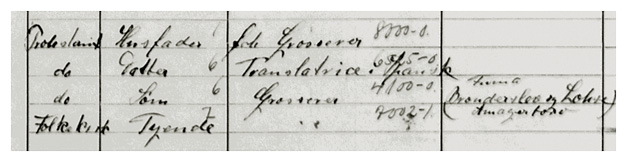 Protestant Husfader fvh Grosserer 8000-0.
do Datter 6 Translatrice i Spansk 6585-0.
do Søn 6 Grosserer 4100-0. Firma (Brønderslev og Lohse) Amagertorv
Folkekirk Tyende 7 " 7002-1.